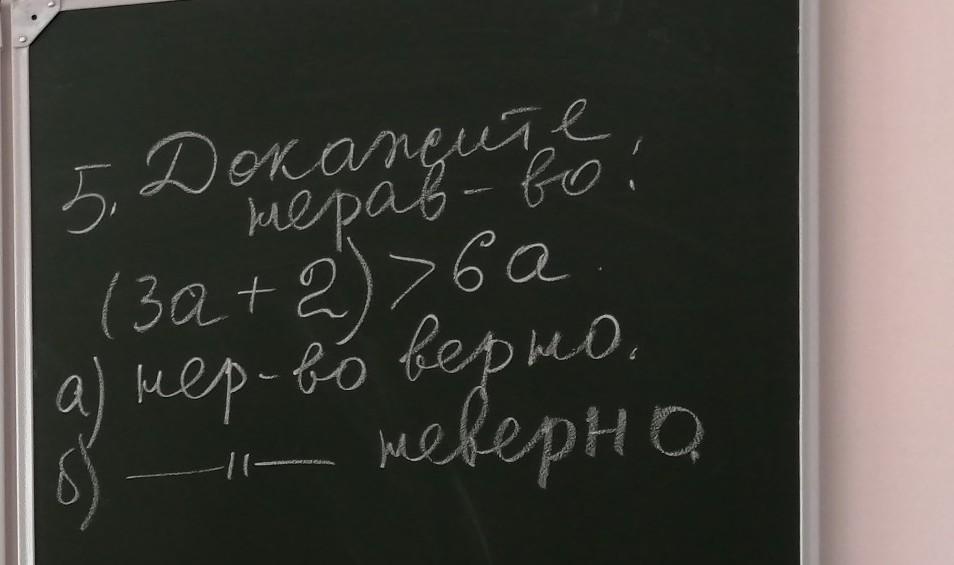 5. Докажите
нерав-во:
(3a + 2) > 6a
а) нер-во верно.
б) —— " —— неверно.